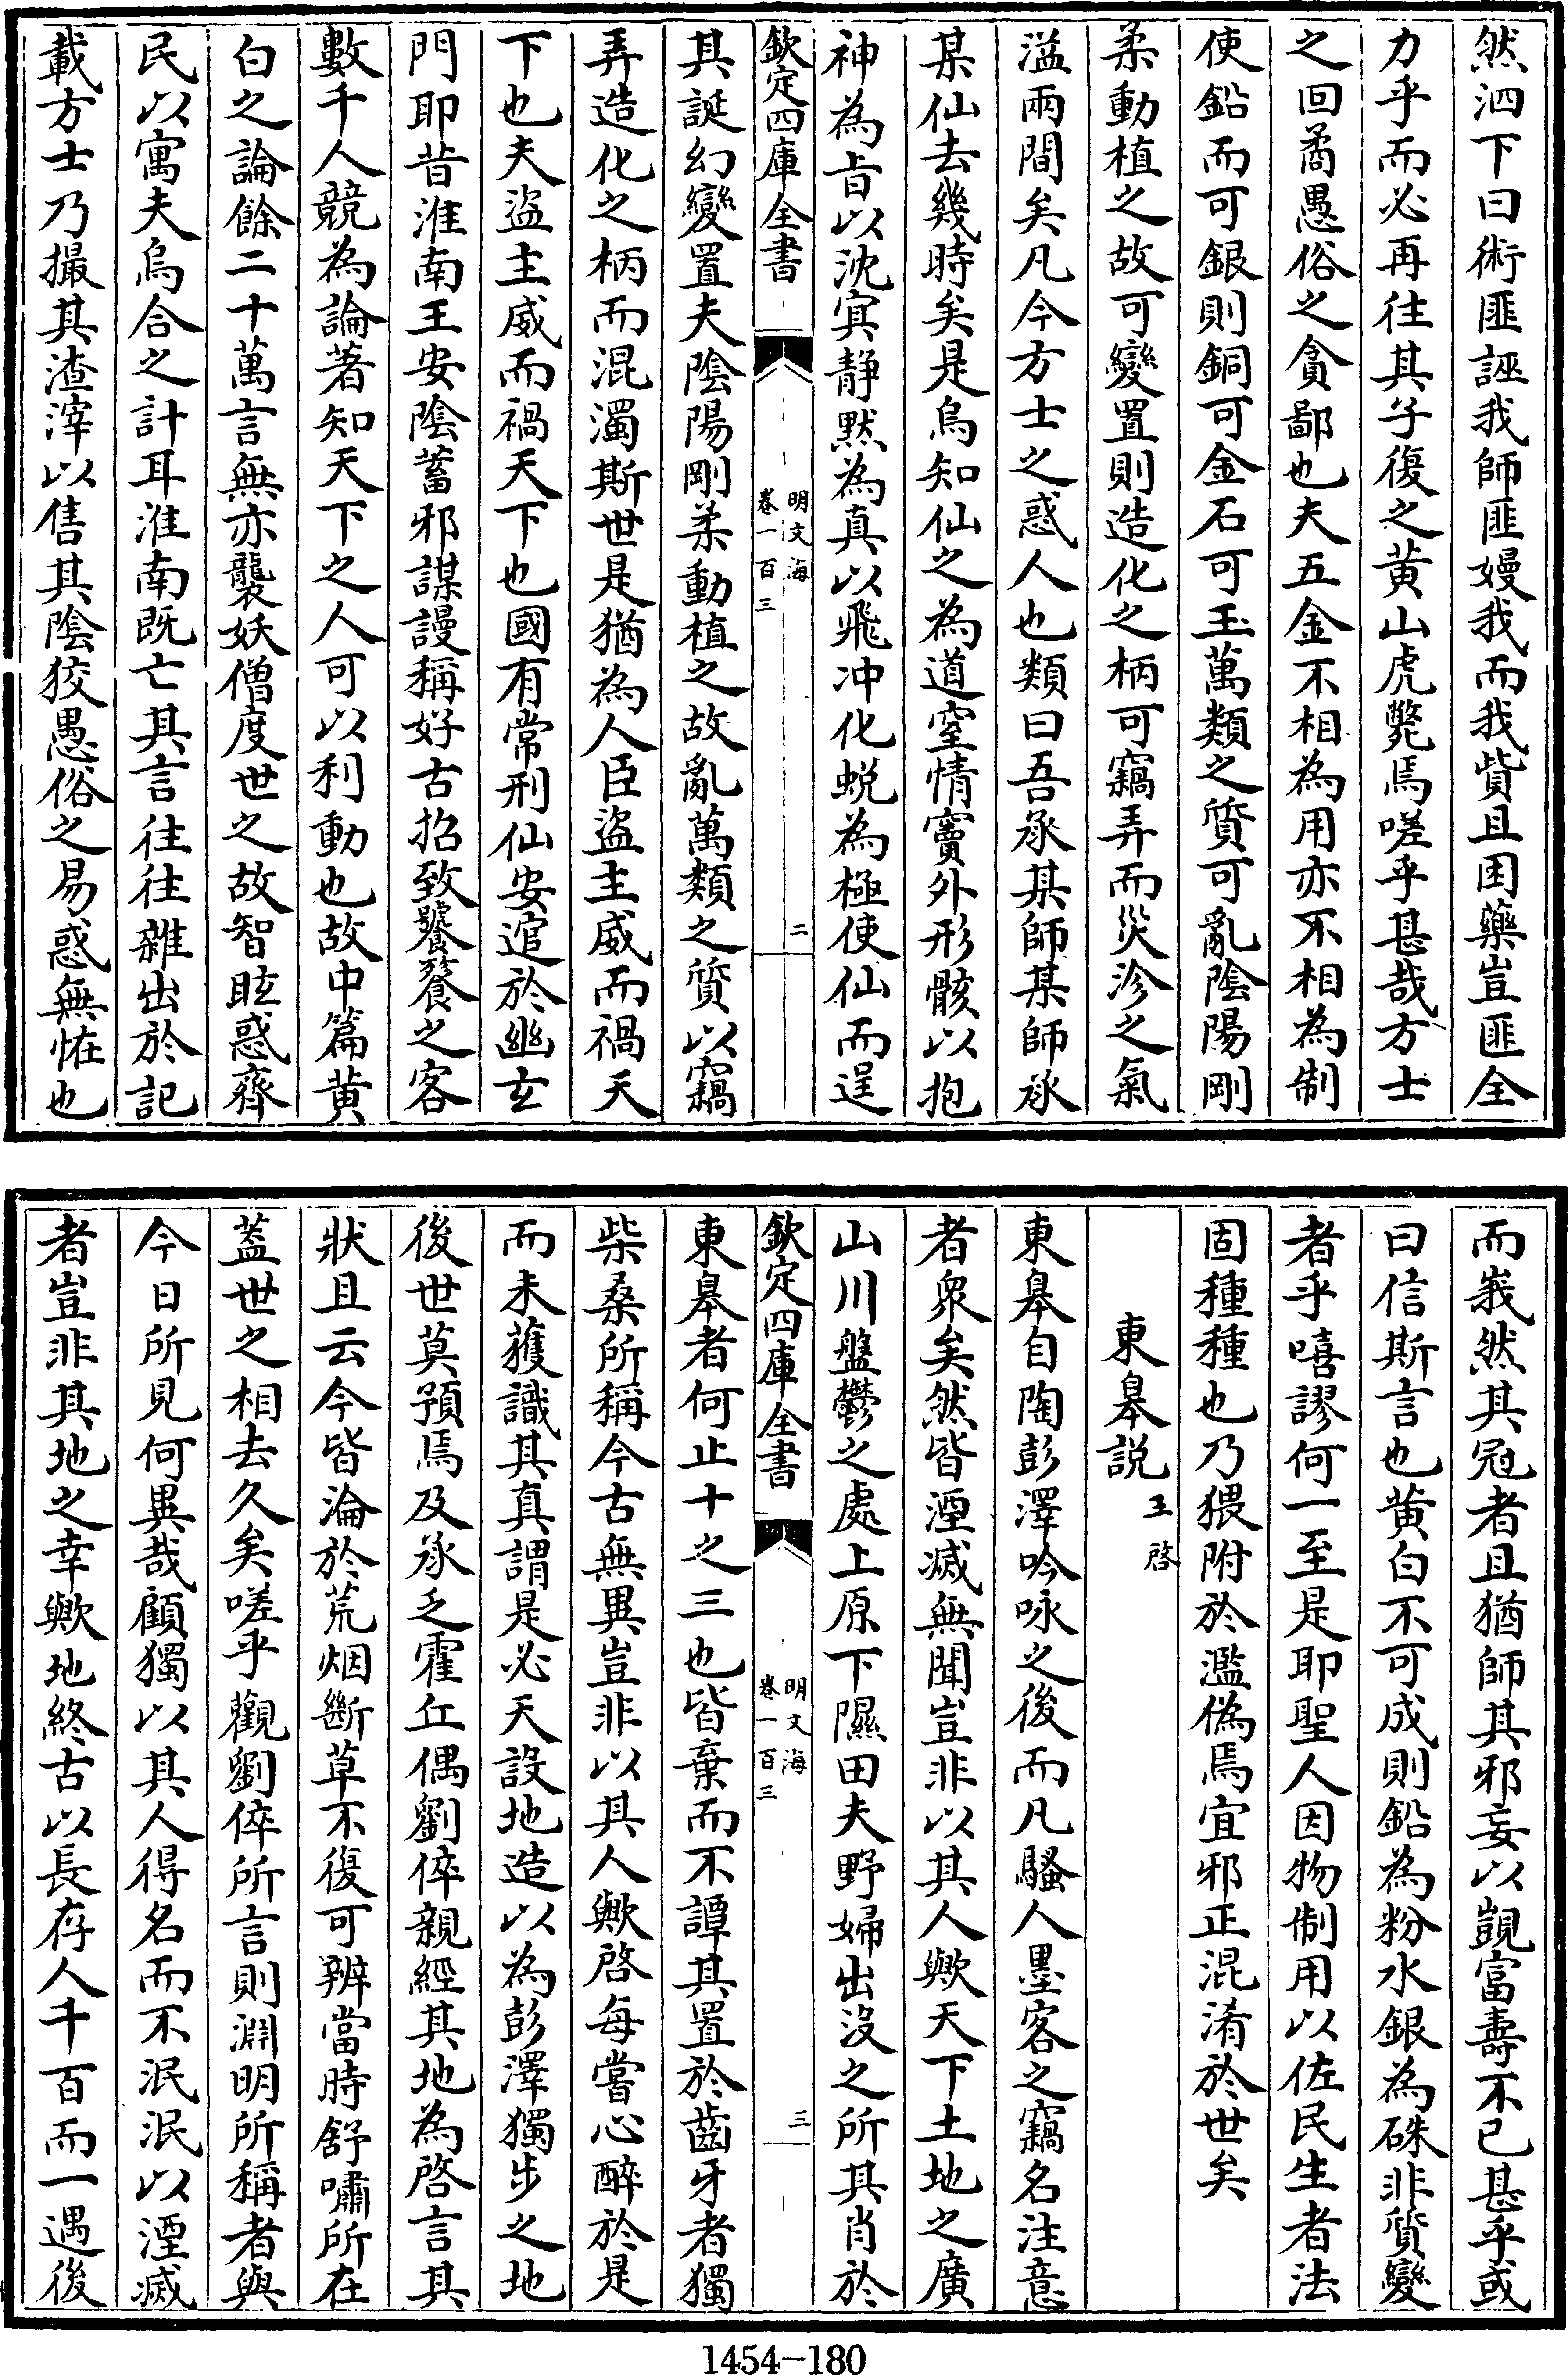 然泗下曰術匪誣我師匪嫚我而我貲且困藥豈匪全
力乎而必再往其子復之黄山虎斃焉嗟乎甚哉方士
之回矞愚俗之貪鄙也夫五金不相為用亦不相為制
使鉛而可銀則銅可金石可玉萬類之質可亂陰陽剛
柔動植之故可變置則造化之柄可竊弄而災沴之氣
溢兩間矣凡今方士之惑人也類曰吾承某師某師承
某仙去幾時矣是烏知仙之為道窒情竇外形骸以抱
神為旨以沈寘静黙為真以飛冲化蜕為極使仙而逞
欽定四庫全書
明文海
卷一百三
二
其誕幻變置夫陰陽剛柔動植之故亂萬類之質以竊
弄造化之柄而混濁斯世是猶為人臣盜主威而禍天
下也夫盜主威而禍天下也國有常刑仙安逭於幽玄
門耶昔淮南王安陰蓄邪謀謾稱好古招致饕餮之客
數千人競為論著知天下之人可以利動也故中篇黄
白之論餘二十萬言無亦襲妖僧度世之故智眩惑齊
民以寓夫烏合之計耳淮南既亡其言往往雜出於記
載方士乃撮其渣滓以售其陰狡愚俗之易惑無怪也
而峩然其冠者且猶師其邪妄以覬富壽不已甚乎或
曰信斯言也黄白不可成則鉛為粉水銀為硃非質變
者乎嘻謬何一至是耶聖人因物制用以佐民生者法
固種種也乃猥附於濫偽焉宜邪正混淆於世矣
東臯説 王啓
東臯自陶彭澤吟咏之後而凡騷人墨客之竊名注意
者衆矣然皆湮滅無聞豈非以其人歟天下土地之廣
山川盤鬱之處上原下隰田夫野婦出没之所其肖於
欽定四庫全書
明文海
卷一百三
三
東臯者何止十之三也皆棄而不譚其置於齒牙者獨
柴桑所稱今古無異豈非以其人歟啓每嘗心醉於是
而未獲識其真謂是必天設地造以為彭澤獨步之地
後世莫預焉及承乏霍丘偶劉倅親經其地為啓言其
狀且云今皆淪於荒烟斷草不復可辨當時舒嘯所在
葢世之相去久矣嗟乎觀劉倅所言則淵明所稱者與
今日所見何異哉顧獨以其人得名而不泯泯以湮滅
者豈非其地之幸歟地終古以長存人千百而一遇後
1454-180